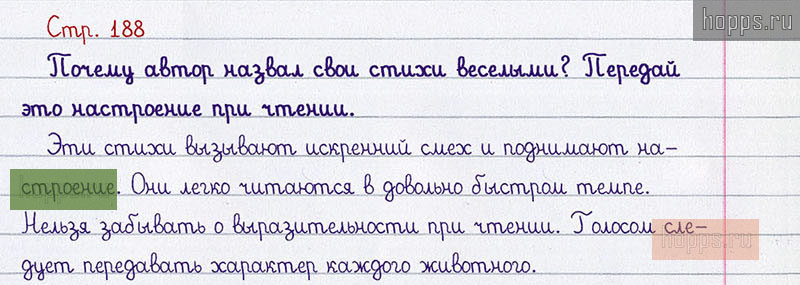 Стр. 188
hopps.ru
Почему автор назвал свои стихи веселыми? Передай
это настроение при чтении.
Эти стихи вызывают искренний смех и поднимают на-
строение. Они легко читаются в довольно быстром темпе.
Нельзя забывать о выразительности при чтении. Голосом сле-
hopps.ru
дует передавать характер каждого животного.